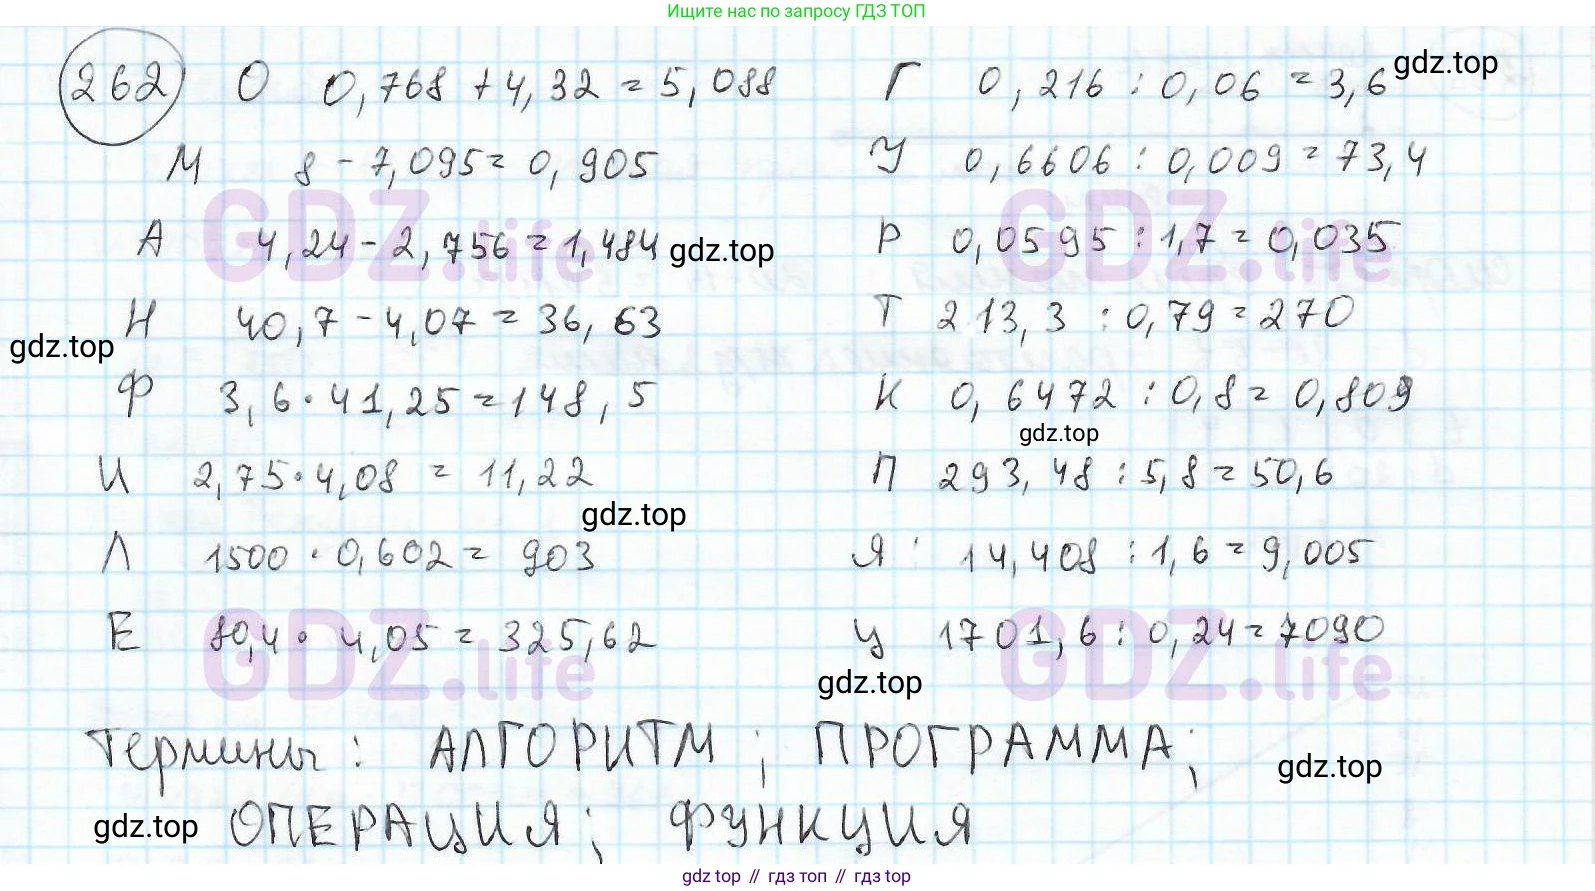 Ищите нас по запросу ГДЗ ТОП
262 О 0,768 + 4,32 = 5,088
М 8 - 7,095 = 0,905
А 4,24 - 2,756 = 1,484
Н 40,7 - 4,07 = 36,63
Ф 3,6 · 41,25 = 148,5
И 2,75 · 4,08 = 11,22
Л 1500 · 0,602 = 903
Е 80,4 · 4,05 = 325,62
Г 0,216 : 0,06 = 3,6
У 0,6606 : 0,009 = 73,4
Р 0,0595 : 1,7 = 0,035
Т 213,3 : 0,79 = 270
К 0,6472 : 0,8 = 0,809
П 293,48 : 5,8 = 50,6
Я : 14,408 : 1,6 = 9,005
Ц 1701,6 : 0,24 = 7090
Термины : АЛГОРИТМ ; ПРОГРАММА;
ОПЕРАЦИЯ; ФУНКЦИЯ
gdz.top
gdz.top
gdz.top
gdz.top
gdz.top
gdz.top
gdz.top
gdz.top
GDZ.life
GDZ.life
GDZ.life
GDZ.life
gdz top // гдз топ // gdz top